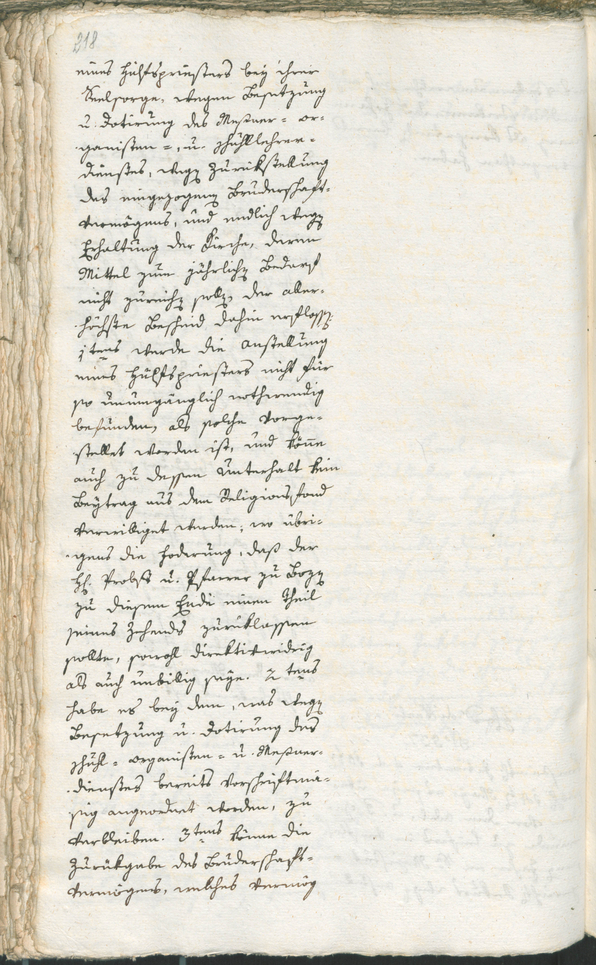 218
eines Hülfspriesters bey ihrer
Seelsorge, wegen Besetzung
u. Dotirung des Meßner- or-
ganisten-, u. Schullehrer-
dienstes, wegen Zurükstellung
des eingezogenen Bruderschaft-
vermögens, und endlich wegen
Erhaltung der Kirche, deren
Mittel zum jährlichen Bedarf
nicht zureichen sollen, der aller-
höchste Bescheid dahin erflossen:
1tens werde die Anstellung
eines Hülfspriesters nicht für
so unumgänglich nothwendig
befunden, als solche vorge-
stellet worden ist, und könne
auch zu dessen Unterhalt kein
Beytrag aus dem Religionsfond
verwilliget werden, wo übri-
gens die Foderung, daß der
H. Probst u. Pfarrer zu Bozen
zu diesem Ende einen Theil
seines Zehends zurüklassen
sollte, sowohl direktivwidrig
als auch unbillig seye. 2tens
habe es bey dem, was wegen
Besetzung u. Dotirung des
Schul- organisten- u. Meßner-
dienstes bereits vorschriftmä-
ßig angeordnet worden, zu
verbleiben. 3tens könne die
Zurükgabe des Bruderschaft-
vermögens, welches vermög